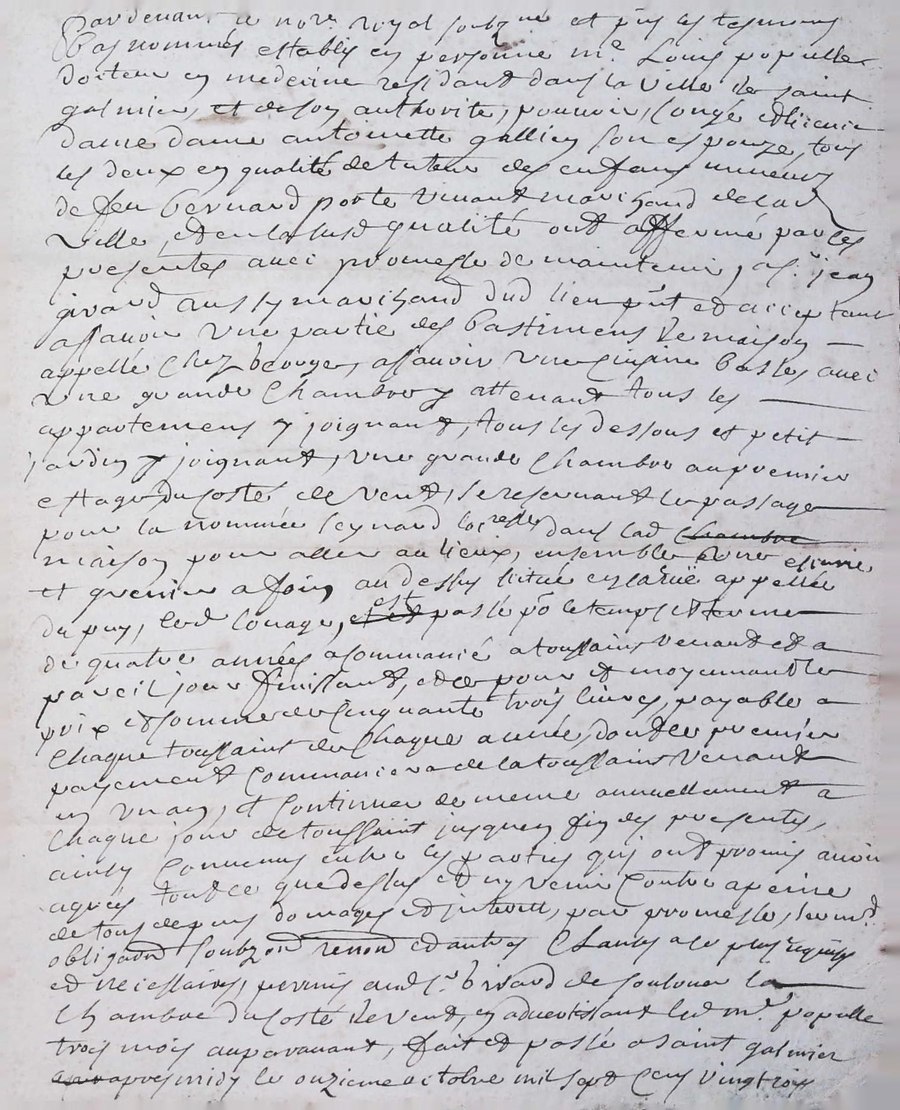 Pardevant le nore royal soubzné et p̃ns les tesmoins
bas nommés estably en personne me. Louis popullle
docteur en medecine residant dans la ville de saint
galmier, et de son authorité, pouvoir, congé et licence
dame dame antoinette gallien son espouze, tous
les deux en qualité de tuteur des enfans mineurs
de feu bernard porte vivant marchand de lad
ville, et en lasusd qualité ont affermé par ces
presentes avec promesse de maintenir, a sr. jean
girard aussy marchand dud lieu p̃nt et acceptant
assavoir une partie des bastimens de maison
appellé chez , assavoir une cuisine basses avec
une grande chambre y attenant tous les
appartemens y joignant, tous les dessous et petit
jardin y joignant, une grande chambre au premier
ettage du costé de vent, se reservant le passage
pour la nommée peynard dans lad chambre
maison pour aller au lieux, ensemble une escurie
et grenier a foin au dessus situé en la rue appellée
du puy, led louage, est passé p̃r le temps et terme
de quatre années a commancé a toussaint venant et a
pareil jour finissant, et ce pour et moyennant le
prix et somme de cinquante trois livres, payable a
chaque toussaint de chaque année, dont le premier
payement commancera de la toussaint venant
en un an, et continuer de meme annuellement a
chaque jour de toussaint jusquen fin des presentes,
ainsy convenus entre les parties qui ont promis avoir
agrées tout ce que dessus et ny venir contre a peine
de tous depans domages et interest, par promesse, serm̃t
obligaon soubzon renon et autres clauses a ce plus requises
et necessaires, permis aud sr. girard de soulouer la
chambre du costé de vent, en advertissant led mr. popullle
trois mois auparavant, fait et passé a saint galmier
apres midy le onzieme octobre mil sept cens vingt trois